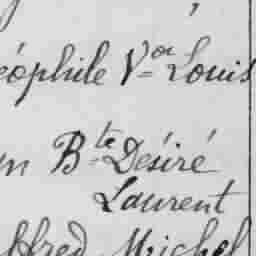 éophile Vor Louis
n Bte Désiré
Laurent
lfred Michel